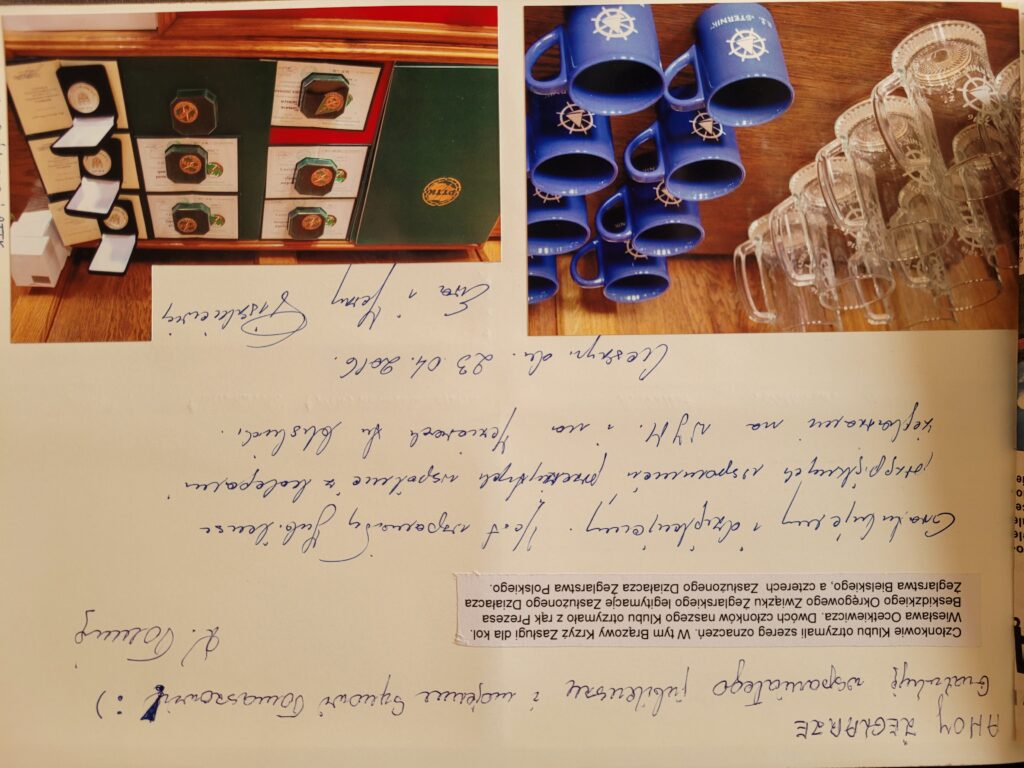 AHOY ŻEGLARZE
Gratuluję wspaniałego jubileuszu i Synowi Tomaszowi :)
K.
Członkowie Klubu otrzymali szereg oznaczeń. W tym Brązowy Krzyż Zasługi dla kol.
Wiesława Ocetkiewicza. Dwóch członków naszego Klubu otrzymało z rąk Prezesa
Beskidzkiego Okręgowego Związku Żeglarskiego legitymacje Zasłużonego Działacza
Żeglarstwa Bielskiego, a czterech Zasłużonego Działacza Żeglarstwa Polskiego.
Gratulujemy i dziękujemy. Jest wspaniały Jubileusz
przepięknych wspomnień przeżytych wspólnie z kolegami
żeglarzami na i na Jeziorach
Cieszyn dn. 23.04.2016.
Ewa i Jerzy
"STERNIK"
PTTK